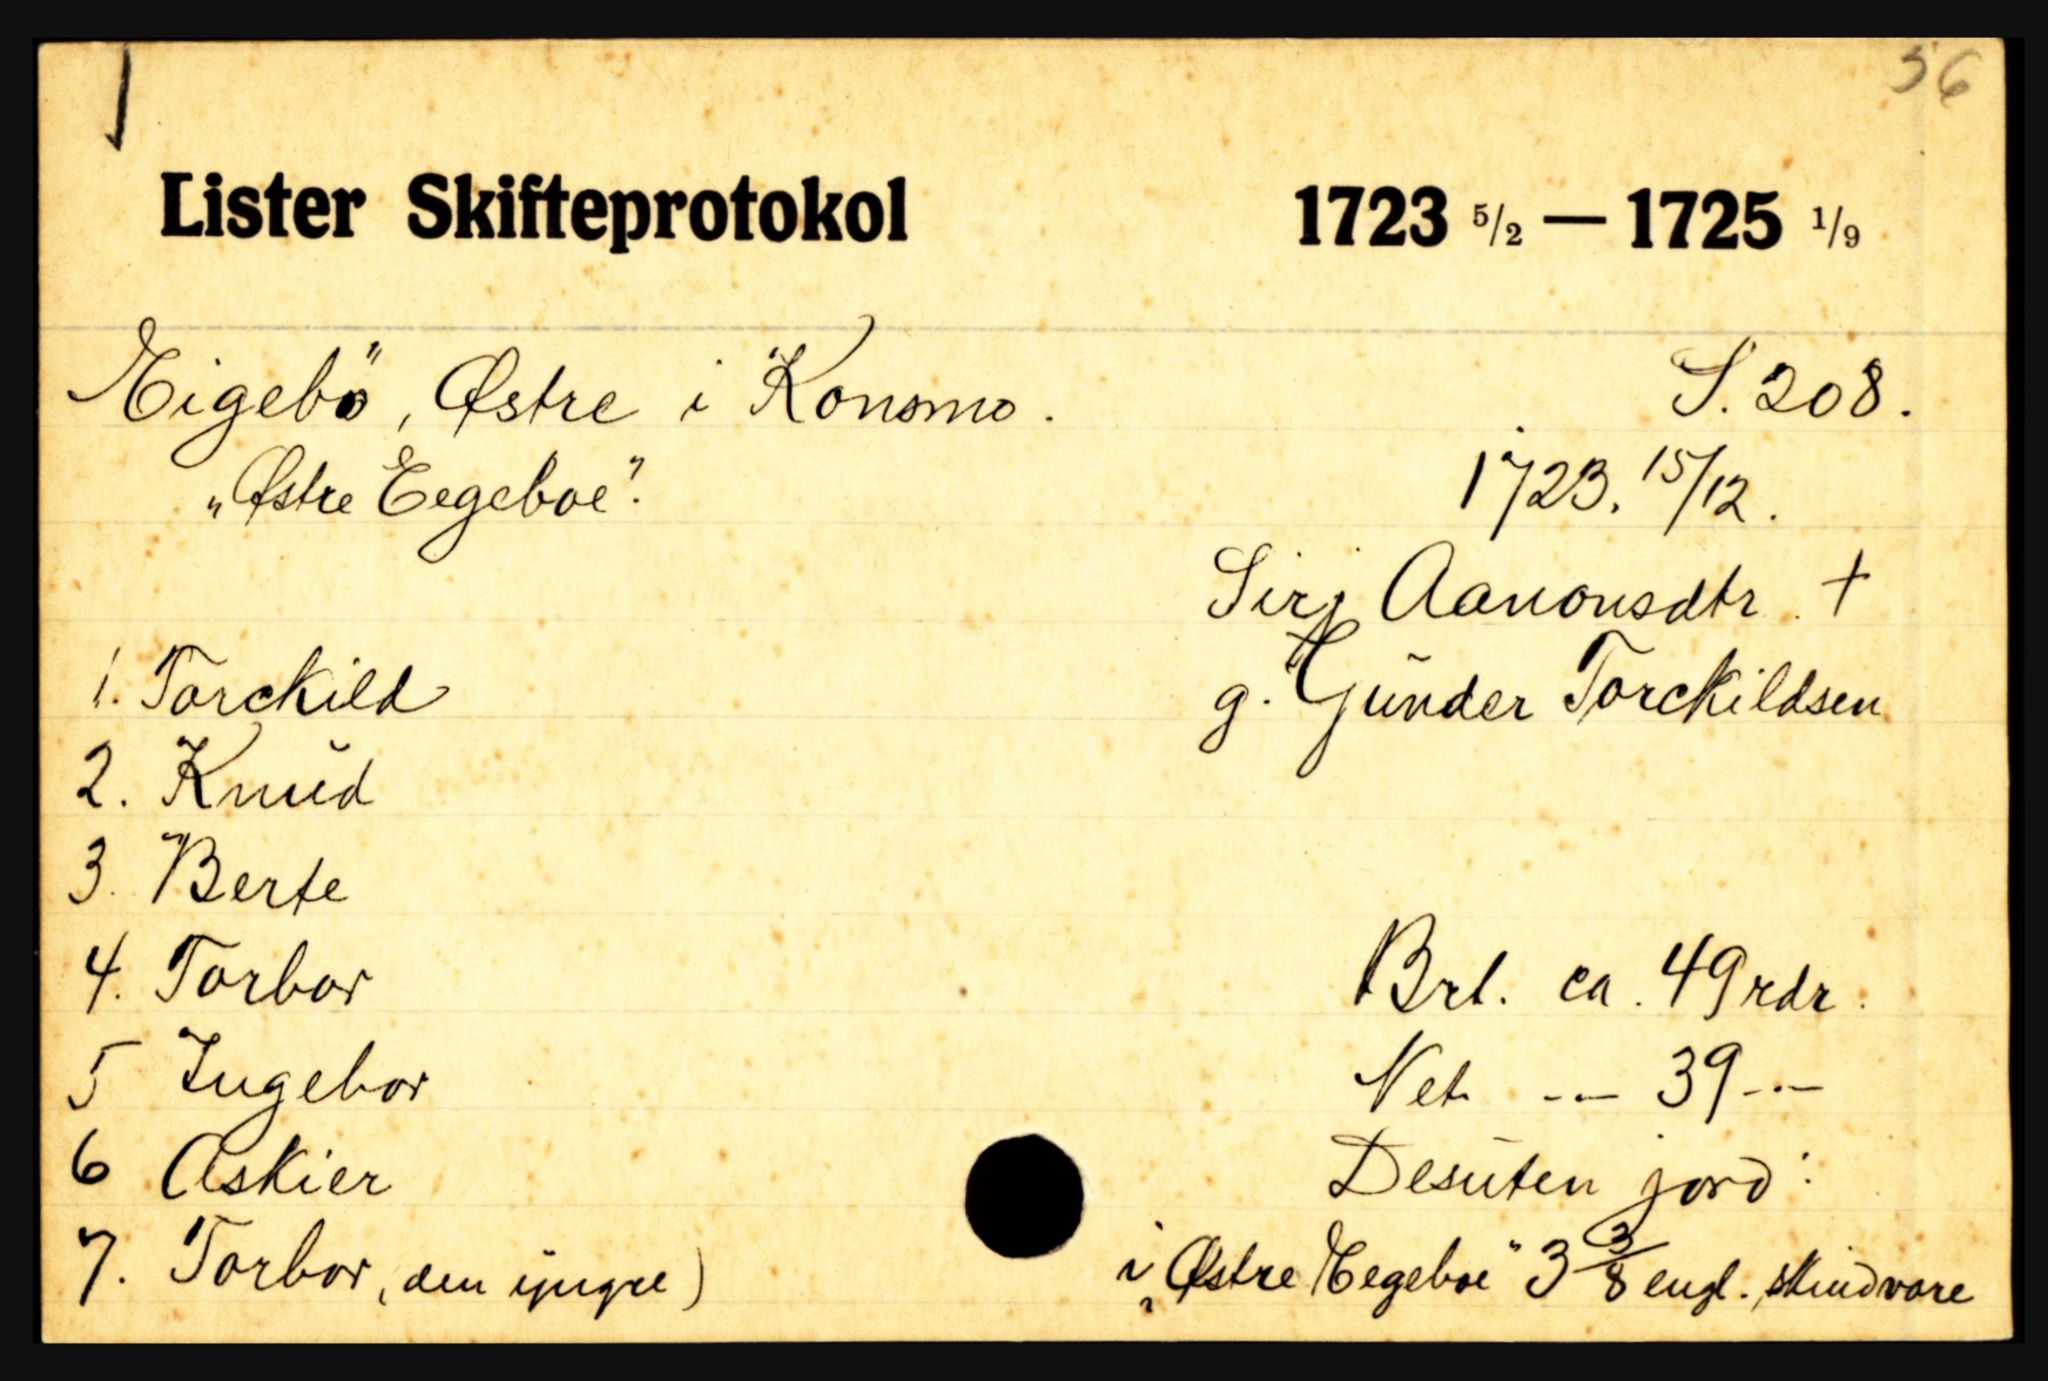 56
Lister Skifteprotokol 1723 5/2 — 1725 1/9
Eigebö, Østre i Konsmo. S. 208.
„Østre Eegeboe". 1723. 15/12.
Sirj Aanonsdtr. +
1. Torckild g. Gŭnder Torckildsen
2. Knŭd
3. Berte
4. Torbor Brt. ca. 49 rdr.
5 Ingebor Net. -.— 39 -.—
6 Askier Desŭten jord:
7. Torbor, (den ÿngre) i „Østre Eegeboe" 3 3/8 engl. skindvare